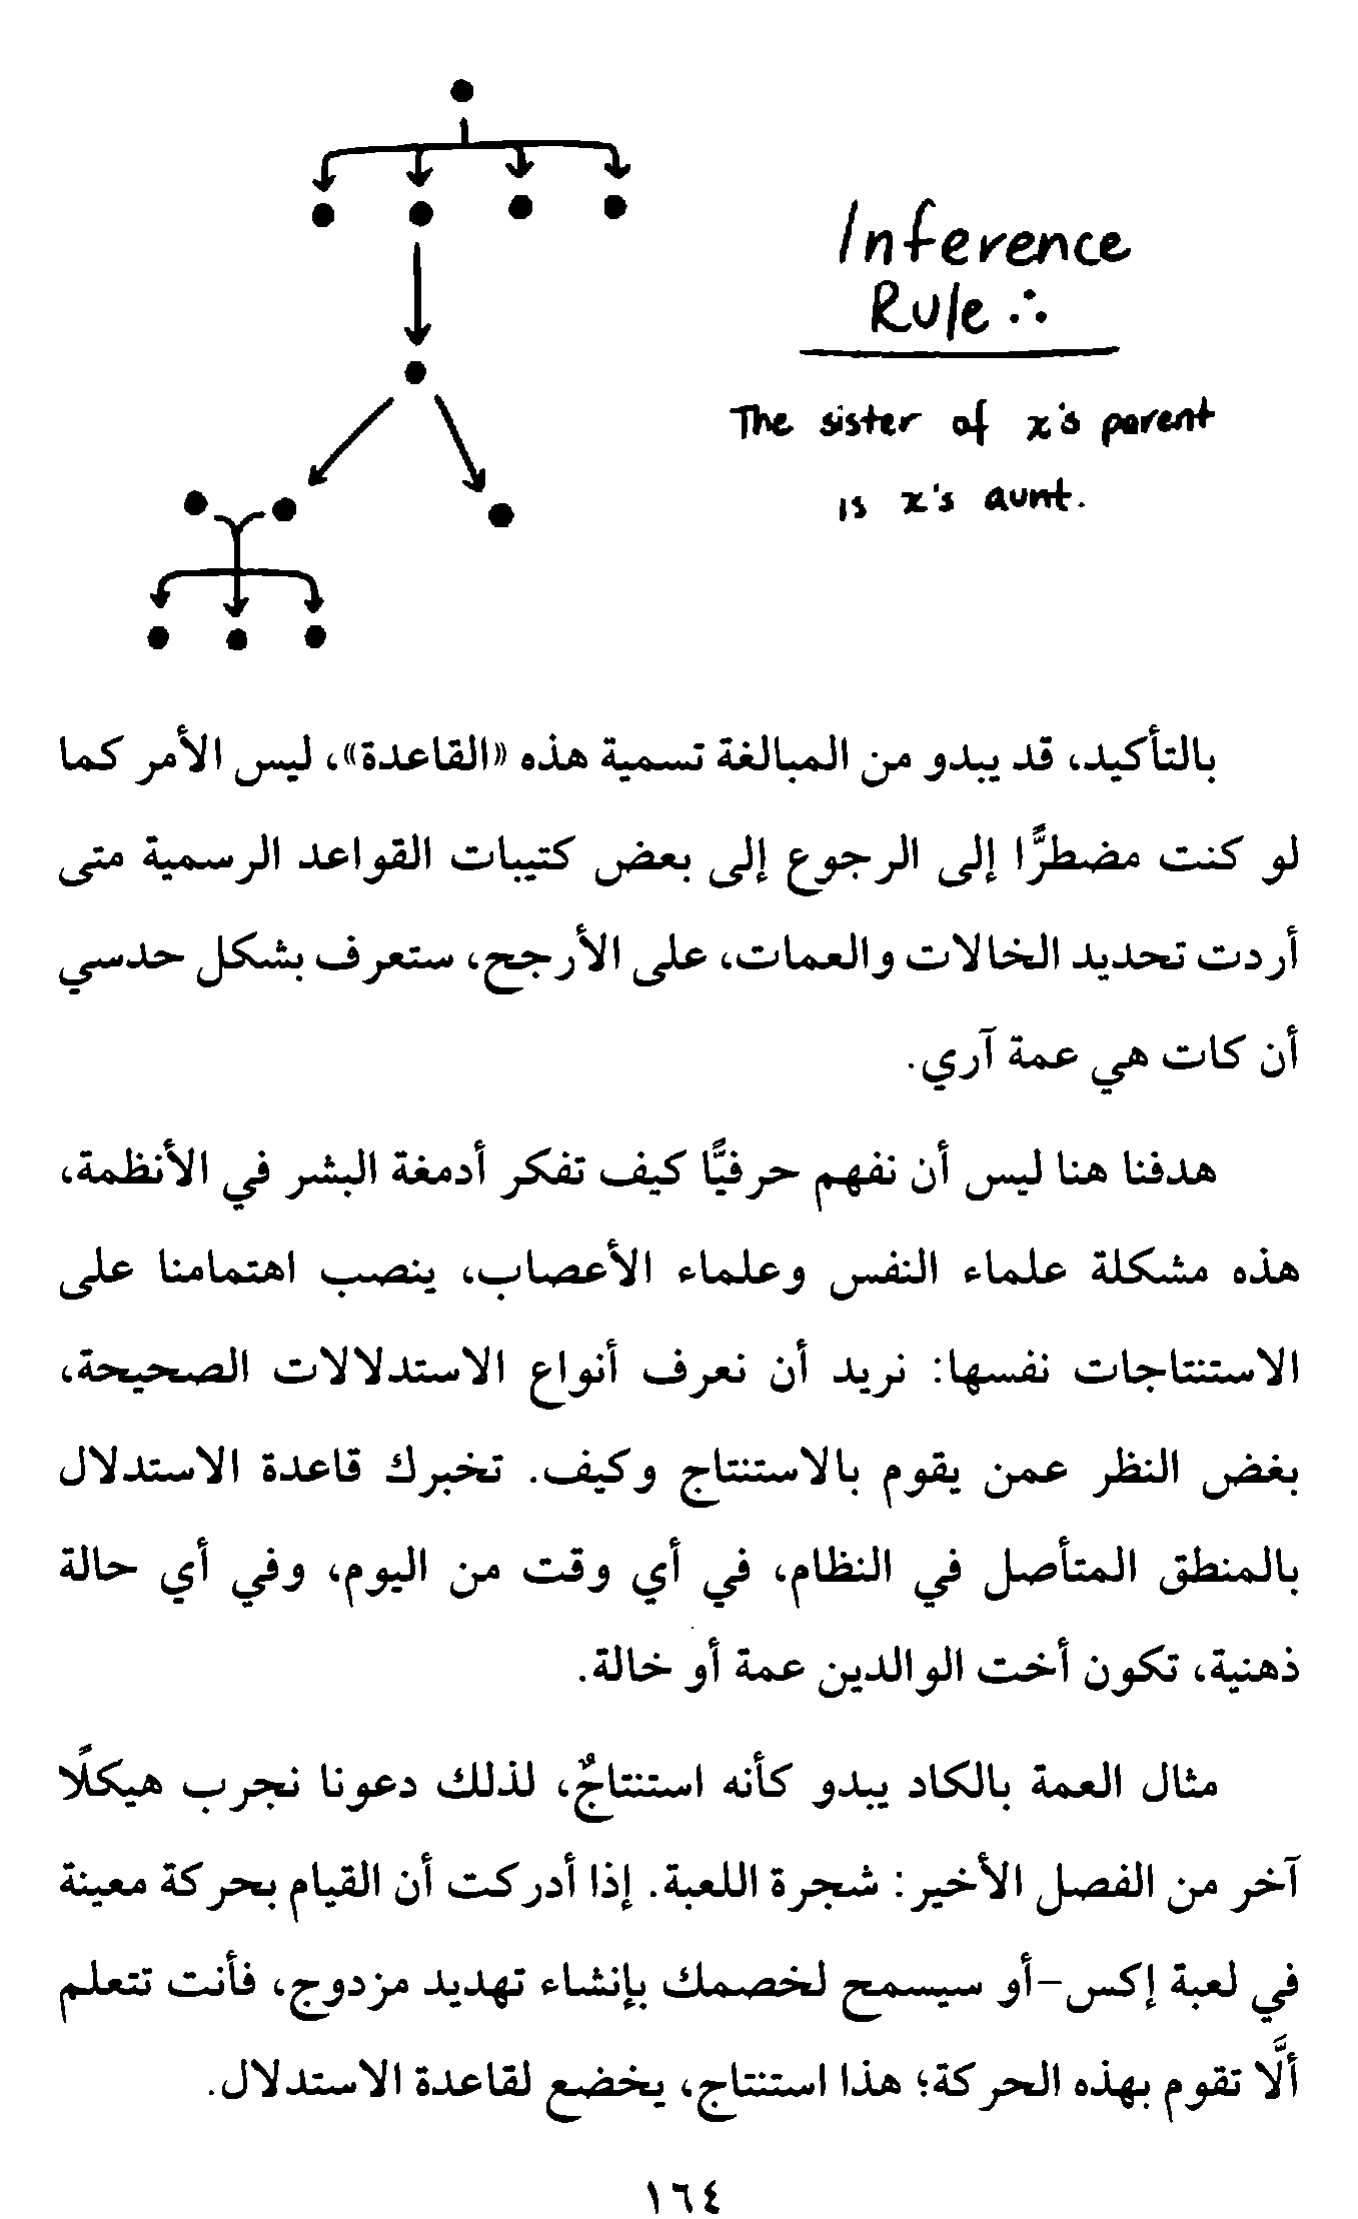 Inference
Rule ∴
The sister of x's parent
is x's aunt.
بالتأكيد، قد يبدو من المبالغة تسمية هذه «القاعدة»، ليس الأمر كما
لو كنت مضطرًّا إلى الرجوع إلى بعض كتيبات القواعد الرسمية متى
أردت تحديد الخالات والعمات، على الأرجح، ستعرف بشكل حدسي
أن كات هي عمة آري.
هدفنا هنا ليس أن نفهم حرفيًّا كيف تفكر أدمغة البشر في الأنظمة،
هذه مشكلة علماء النفس وعلماء الأعصاب، ينصب اهتمامنا على
الاستنتاجات نفسها: نريد أن نعرف أنواع الاستدلالات الصحيحة،
بغض النظر عمن يقوم بالاستنتاج وكيف. تخبرك قاعدة الاستدلال
بالمنطق المتأصل في النظام، في أي وقت من اليوم، وفي أي حالة
ذهنية، تكون أخت الوالدين عمة أو خالة.
مثال العمة بالكاد يبدو كأنه استنتاجٌ، لذلك دعونا نجرب هيكلًا
آخر من الفصل الأخير: شجرة اللعبة. إذا أدركت أن القيام بحركة معينة
في لعبة إكس-أو سيسمح لخصمك بإنشاء تهديد مزدوج، فأنت تتعلم
ألَّا تقوم بهذه الحركة؛ هذا استنتاج، يخضع لقاعدة الاستدلال.
١٦٤